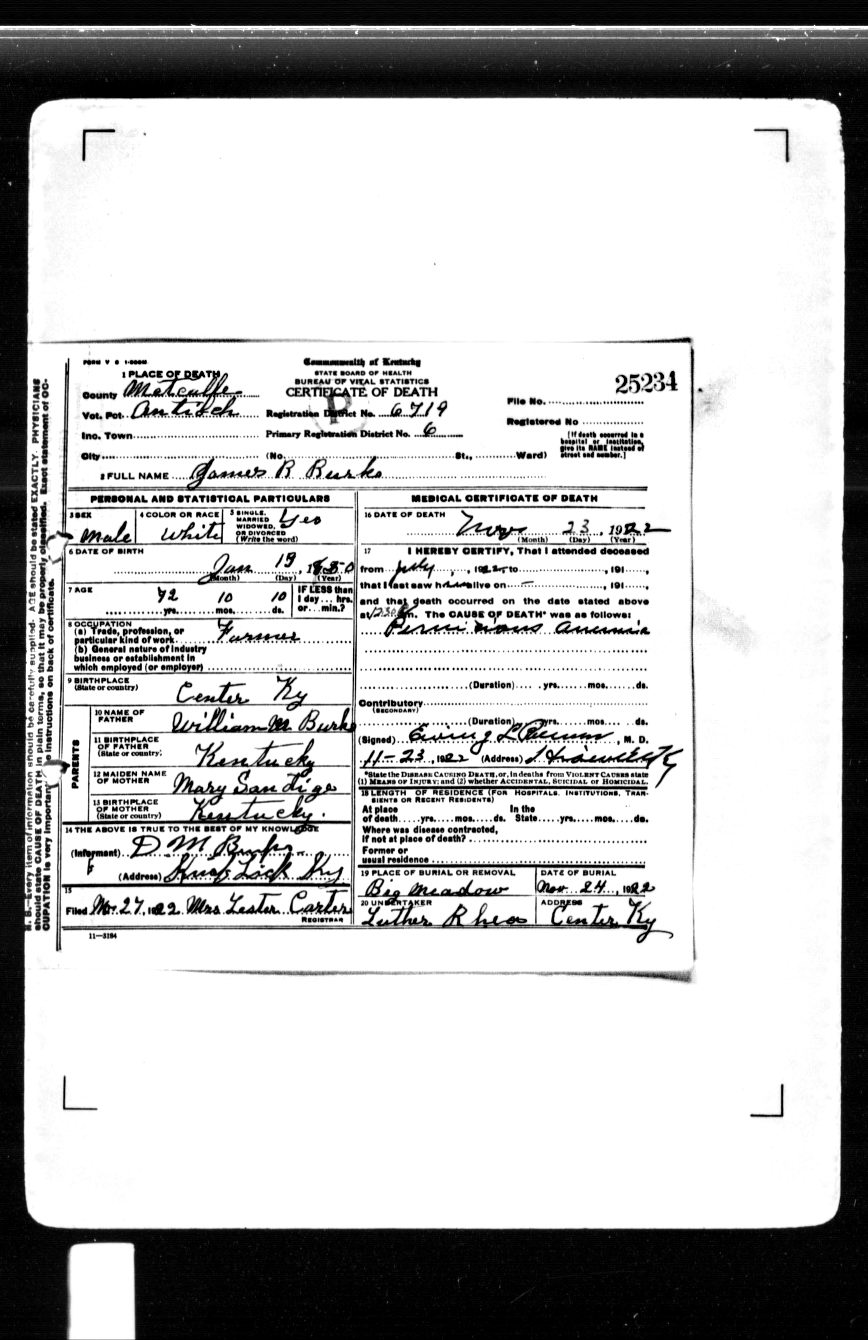 FORM V S 1-500M
Commonwealth of Kentucky
STATE BOARD OF HEALTH
BUREAU OF VITAL STATISTICS
CERTIFICATE OF DEATH
25234
1 PLACE OF DEATH
County Metcalfe
Vot. Pct. Antioch Registration District No. 6719
P
File No.
Registered No
Inc. Town Primary Registration District No. 6
[If death occurred in a hospital or institution, give its NAME instead of street and number.]
City (No. St., Ward)
2 FULL NAME James R Burks
PERSONAL AND STATISTICAL PARTICULARS
3 SEX Male
4 COLOR OR RACE White
5 SINGLE, MARRIED WIDOWED, OR DIVORCED (Write the word) Yes
6 DATE OF BIRTH
Jan 13, 1850
(Month) (Day) (Year)
7 AGE 72 yrs. 10 mos. 10 ds.
IF LESS than 1 day... hrs. or... min.?
8 OCCUPATION
(a) Trade, profession, or particular kind of work Farmer
(b) General nature of industry business or establishment in which employed (or employer)
9 BIRTHPLACE (State or country) Center Ky
PARENTS
10 NAME OF FATHER William M Burks
11 BIRTHPLACE OF FATHER (State or country) Kentucky
12 MAIDEN NAME OF MOTHER Mary Sandige
13 BIRTHPLACE OF MOTHER (State or country) Kentucky.
14 THE ABOVE IS TRUE TO THE BEST OF MY KNOWLEDGE
(Informant) D M Burks
(Address) Knob Lick Ky
15
Filed 27, 1922 Mrs Lester Carter
REGISTRAR
11-3184
MEDICAL CERTIFICATE OF DEATH
16 DATE OF DEATH
Nov 23, 1922
(Month) (Day) (Year)
17 I HEREBY CERTIFY, That I attended deceased
from July, 1922, to, 191,
that I last saw h alive on, 191,
and that death occurred on the date stated above
at m. The CAUSE OF DEATH* was as follows:
Pernicious anemia
(Duration) yrs. mos. ds.
Contributory
(SECONDARY)
(Duration) yrs. mos. ds.
(Signed) Ewing L, M. D.
11-23, 1922 (Address)
*State the DISEASE CAUSING DEATH, or, in deaths from VIOLENT CAUSES state (1) MEANS OF INJURY; and (2) whether ACCIDENTAL, SUICIDAL or HOMICIDAL.
18 LENGTH OF RESIDENCE (FOR HOSPITALS, INSTITUTIONS, TRANSIENTS OR RECENT RESIDENTS)
At place of death yrs. mos. ds. In the State yrs. mos. ds.
Where was disease contracted, if not at place of death?
Former or usual residence
19 PLACE OF BURIAL OR REMOVAL Big Meadow
DATE OF BURIAL Nov 24, 1922
20 UNDERTAKER Luther Rhea
ADDRESS Center Ky
N. B.—Every item of information should be carefully supplied. AGE should be stated EXACTLY. PHYSICIANS
should state CAUSE OF DEATH in plain terms, so that it may be properly classified. Exact statement of OC-
CUPATION is very important. See instructions on back of certificate.